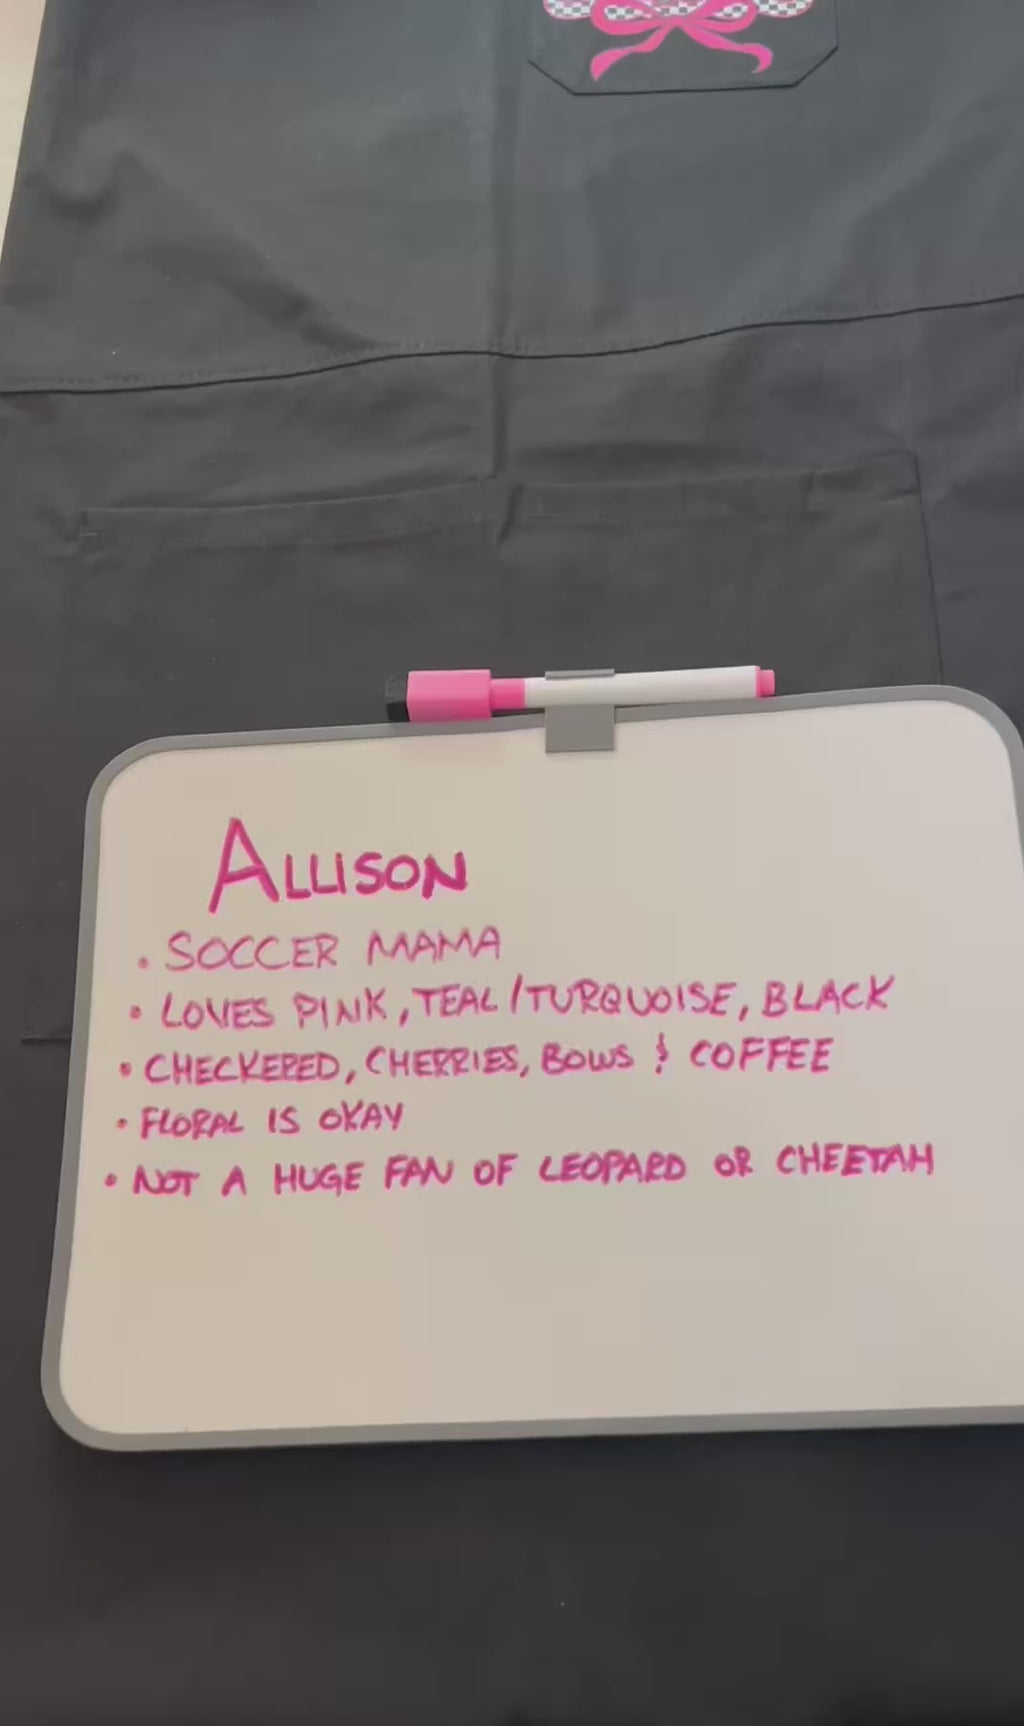 ALLISON
• SOCCER MAMA
• LOVES PINK, TEAL/TURQUOISE, BLACK
• CHECKERED, CHERRIES, BOWS & COFFEE
• FLORAL IS OKAY
• NOT A HUGE FAN OF LEOPARD OR CHEETAH